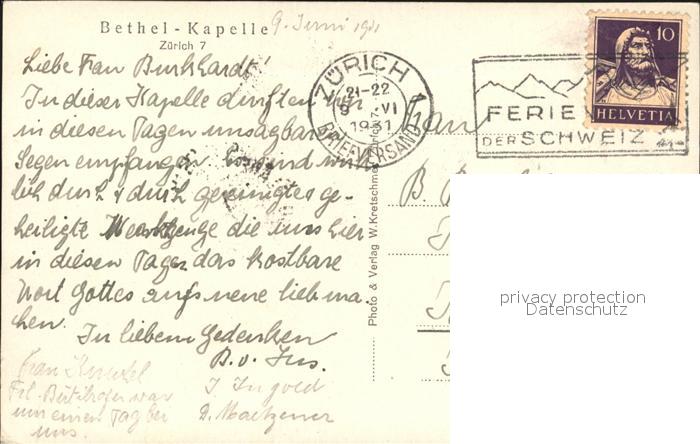 Bethel-Kapelle
Zürich 7
9. Juni 1931
Liebe Frau Burkhardt!
In dieser Kapelle durften wir
in diesen Tagen unsagbar
Segen empfangen. Es sind wirk
lich durch & durch gereinigtes ge-
heiligte Werkzeuge die uns hier
in diesen Tagen das kostbare
Wort Gottes aufs neue lieb ma-
chen.
In liebem Gedenken
B. v. Ins.
J. Ingold
D. Maetzener
Frau Kunzel
Frl. Bütikofer war
um einen Tag bei
uns.
Photo & Verlag W. Kretschmer, Zürich 7.
ZÜRICH 1
21-22
9. VI
1931
BRIEFVERSAND
FERIE
DER SCHWEIZ
10
HELVETIA
Frau
B.
privacy protection
Datenschutz